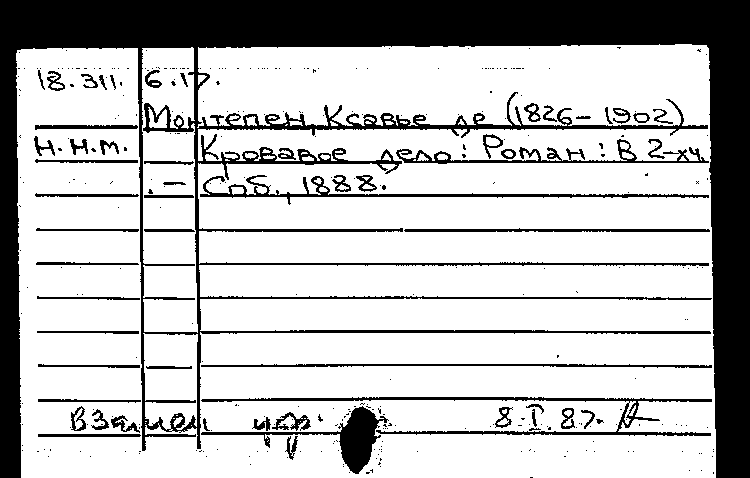 18.311. 6.17.
Монтепен, Ксавье де (1826-1902)
Н.Н.М. Кровавое дело: Роман: В 2-х ч.
.- Спб., 1888.
Взамен утр. 8.I.87.